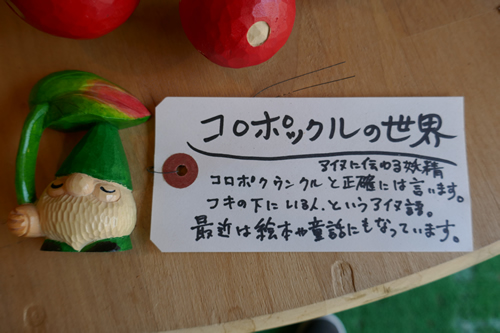 コロポックルの世界
アイヌに伝わる妖精
コロポクウンクルと正確には言います。
フキの下にいる人、というアイヌ語。
最近は絵本や童話にもなっています。